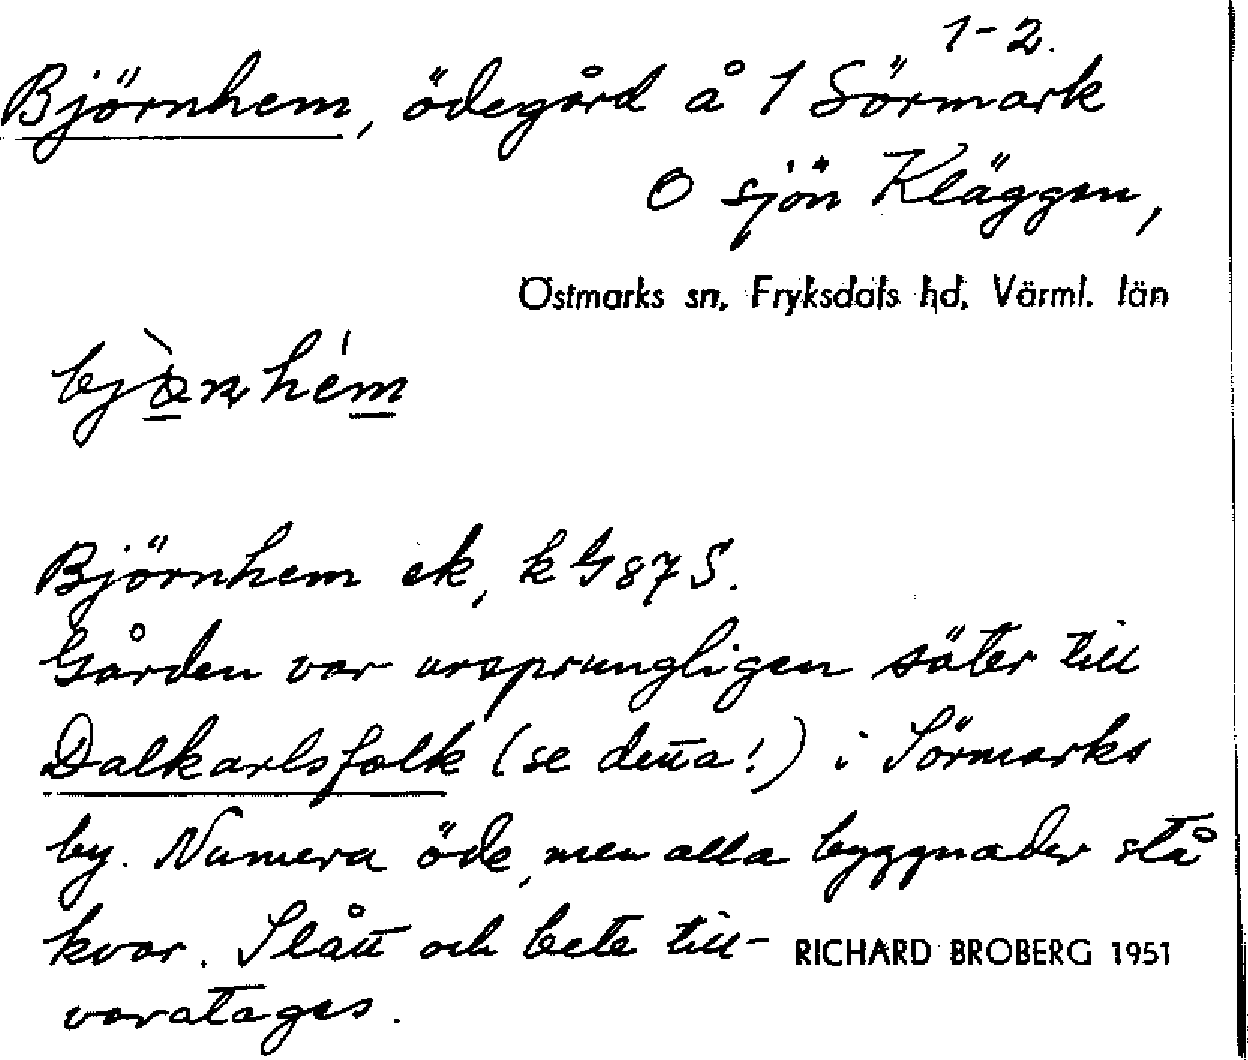 1-2.
Björnhem, ödegård å 1 Sörmark
O sjön Kläggen,
Östmarks sn, Fryksdals hd, Värml. län
Björnhem ek, k G 87 S.
Gården var ursprungligen säter till
Dalkarlsfolk (se denna!) i Sörmarks
by. Numera öde, men alla byggnader stå
kvar. Slått och bete till-
varatages.
RICHARD BROBERG 1951